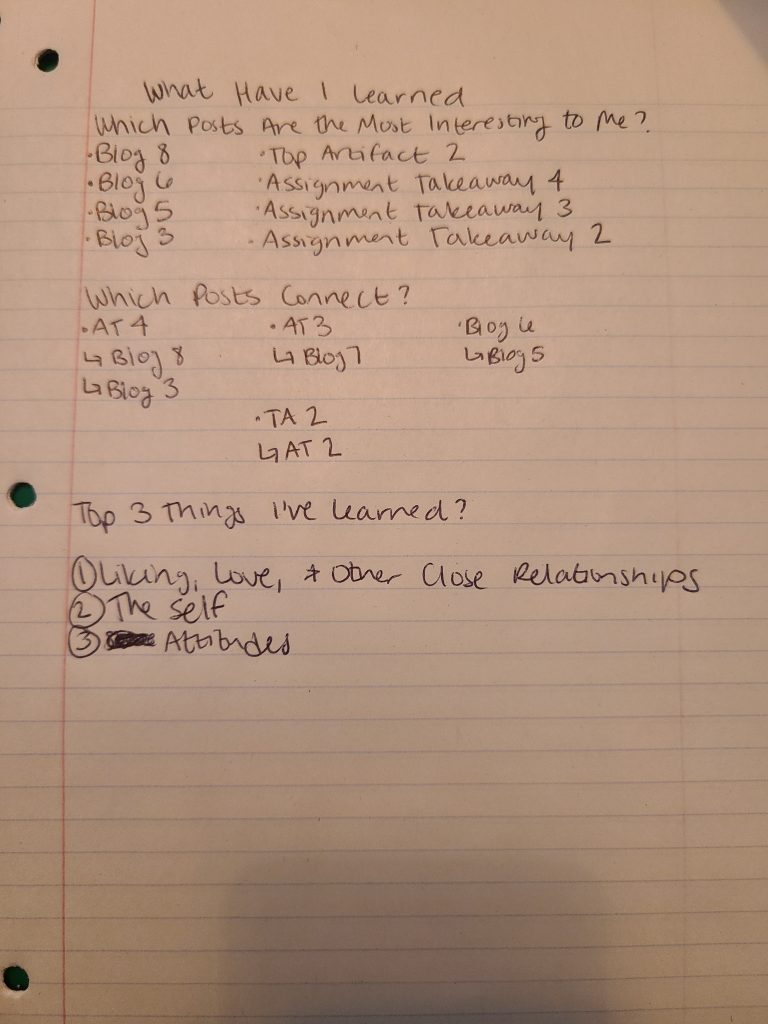 What Have I Learned
Which Posts Are the Most Interesting to Me?
·Blog 8 ·Top Artifact 2
·Blog 6 ·Assignment Takeaway 4
·Blog 5 ·Assignment Takeaway 3
·Blog 3 ·Assignment Takeaway 2
Which Posts Connect?
·AT 4 ·AT 3 ·Blog 6
↳ Blog 8 ↳ Blog 7 ↳ Blog 5
↳ Blog 3
·TA 2
↳ AT 2
Top 3 Things I've Learned?
① Liking, Love, + Other Close Relationships
② The Self
③ Attitudes